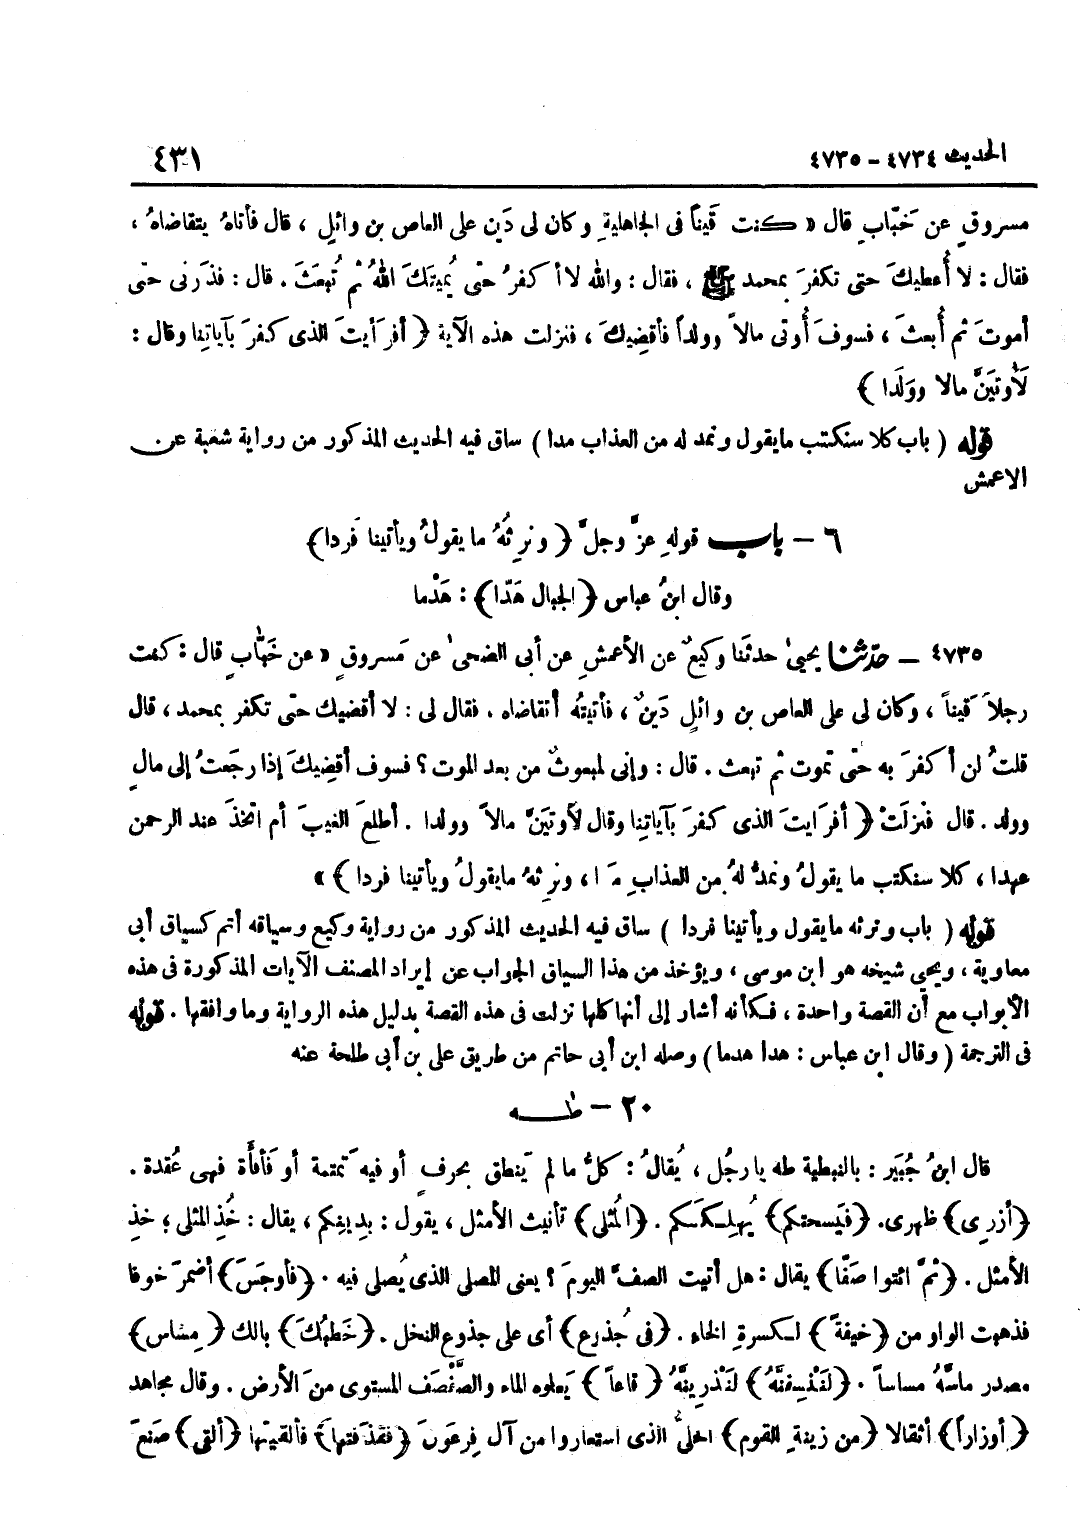 الحديث ٤٧٣٤ - ٤٧٣٥
٤٣١
مسروقٍ عن خبّابٍ قال « كنت قَيناً فى الجاهليةِ وكان لى دَين على العاص بن وائلٍ ، قال فأتاهُ يتقاضاهُ ،
فقال : لا أُعطيكَ حتى تكفرَ بمحمد ﷺ ، فقال : والله لا أكفرُ حتّى يُميتَكَ اللهُ ثم تُبعثَ . قال : فذَرنى حتّى
أموتَ ثم أُبعثَ ، فسوفَ أُوتى مالاً وولداً فأقضِيكَ ، فنزلت هذه الآية ﴿ أفرَأيتَ الذى كفرَ بآياتِنا وقال :
لَأُوتيَنَّ مالا وولَدا ﴾
قوله ( باب كلا سنكتب مايقول ونمد له من العذاب مدا ) ساق فيه الحديث المذكور من رواية شعبة عن
الاعمش
٦ - باب قولهِ عزَّ وجلَّ ﴿ ونرِثُهُ ما يقولُ ويأتينا فَردا ﴾
وقال ابنُ عباس ﴿ الجبال هَدّا ﴾ : هَدْما
٤٧٣٥ - حدّثنا يحيىٰ حدثَنا وكيعٌ عن الأعمشِ عن أبى الضحىٰ عن مَسروقٍ « عن خَبّابٍ قال : كنت
رجلاً قَيناً ، وكان لى على العاص بن وائلٍ دَينٌ ، فأتيتُه أتقاضاه . فقال لى : لا أقضيك حتّى تكفر بمحمد ، قال
قلتُ لن أكفرَ به حتّى تموت ثم تبعث . قال : وإنى لمبعوثٌ من بعد الموت ؟ فسوف أقضِيكَ إذا رجَعتُ إلى مالٍ
وولد . قال فنزلَتْ ﴿ أفرَايتَ الذى كفرَ بآياتِنا وقال لَأوتَيَنَّ مالاً وولدا . أطلعَ الغيبَ أم اتخذَ عند الرحمن
عهدا ، كلا سنكتب ما يقولُ ونمدُّ لهُ من العذابِ مَدا ، ونرِثهُ مايقولُ ويأتينا فردا ﴾ »
قوله ( باب ونرثه مايقول ويأتينا فردا ) ساق فيه الحديث المذكور من رواية وكيع وسياقه أتم كسياق أبى
معاوية ، ويحيى شيخه هو ابن موسى ، ويؤخذ من هذا السياق الجواب عن إيراد المصنف الآيات المذكورة فى هذه
الأبواب مع أن القصة واحدة ، فكأنه أشار إلى أنها كلها نزلت فى هذه القصة بدليل هذه الرواية وما وافقها . قوله
فى الترجمة ( وقال ابن عباس : هدا هدما ) وصله ابن أبى حاتم من طريق على بن أبى طلحة عنه
٢٠ - طه
قال ابنُ جُبَير : بالنبطية طه يا رجُل ، يُقالُ : كلُّ ما لم يَنطق بحرفٍ أو فيه تَمتمة أو فَأفأة فهى عُقدة .
﴿ أزرِى ﴾ ظهرى. ﴿ فيَسحتكم ﴾ يُهلِككم . ﴿ المُثلى ﴾ تأنيث الأمثل ، يقول : بدِينِكم ، يقال : خُذِ المثلى ؛ خذِ
الأمثل . ﴿ ثمَّ ائتوا صَفّا ﴾ يقال : هل أتيت الصفَّ اليومَ ؟ يعنى المصلى الذى يُصلى فيه . ﴿ فأوجَسَ ﴾ أضمرَ خوفا
فذهبت الواو من ﴿ خيفةً ﴾ لكسرةِ الخاء . ﴿ فى جُذوع ﴾ أى على جذوع النخل . ﴿ خَطبُكَ ﴾ بالك ﴿ مِساس ﴾
مصدر ماسَّهُ مساساً . ﴿ لَنَنْسِفنَّهُ ﴾ لنَذْرِينَّهُ ﴿ قاعاً ﴾ يَعلوه الماء والصَّفصَف المستوى منَ الأرض . وقال مجاهد
﴿ أوزاراً ﴾ أثقالا ﴿ من زِينةِ القوم ﴾ الحلىُّ الذى استعاروا من آل فرعَونَ ﴿ فقذَفتها ﴾ فألقيتها ﴿ ألقى ﴾ صَنعَ